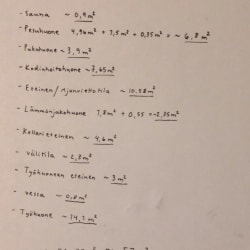 - Sauna ~ 0,9m²
- Pesuhuone 4,96m² + 1,5m² + 0,35m² = ~ 6,8m²
- Pukuhuone ~ 3,9m²
- Kodinhoitohuone ~ 7,65m²
- Eteinen / 10.58m²
- Lämmönjakohuone 1,8m² + 0,35 = ~2,25m²
- Kellarieteinen ~ 4,6m²
- välitila ~ 2,8m²
- Työhuoneen eteinen ~ 3m²
- vessa ~ 0,8m²
- Työhuone ~ 14,2m²